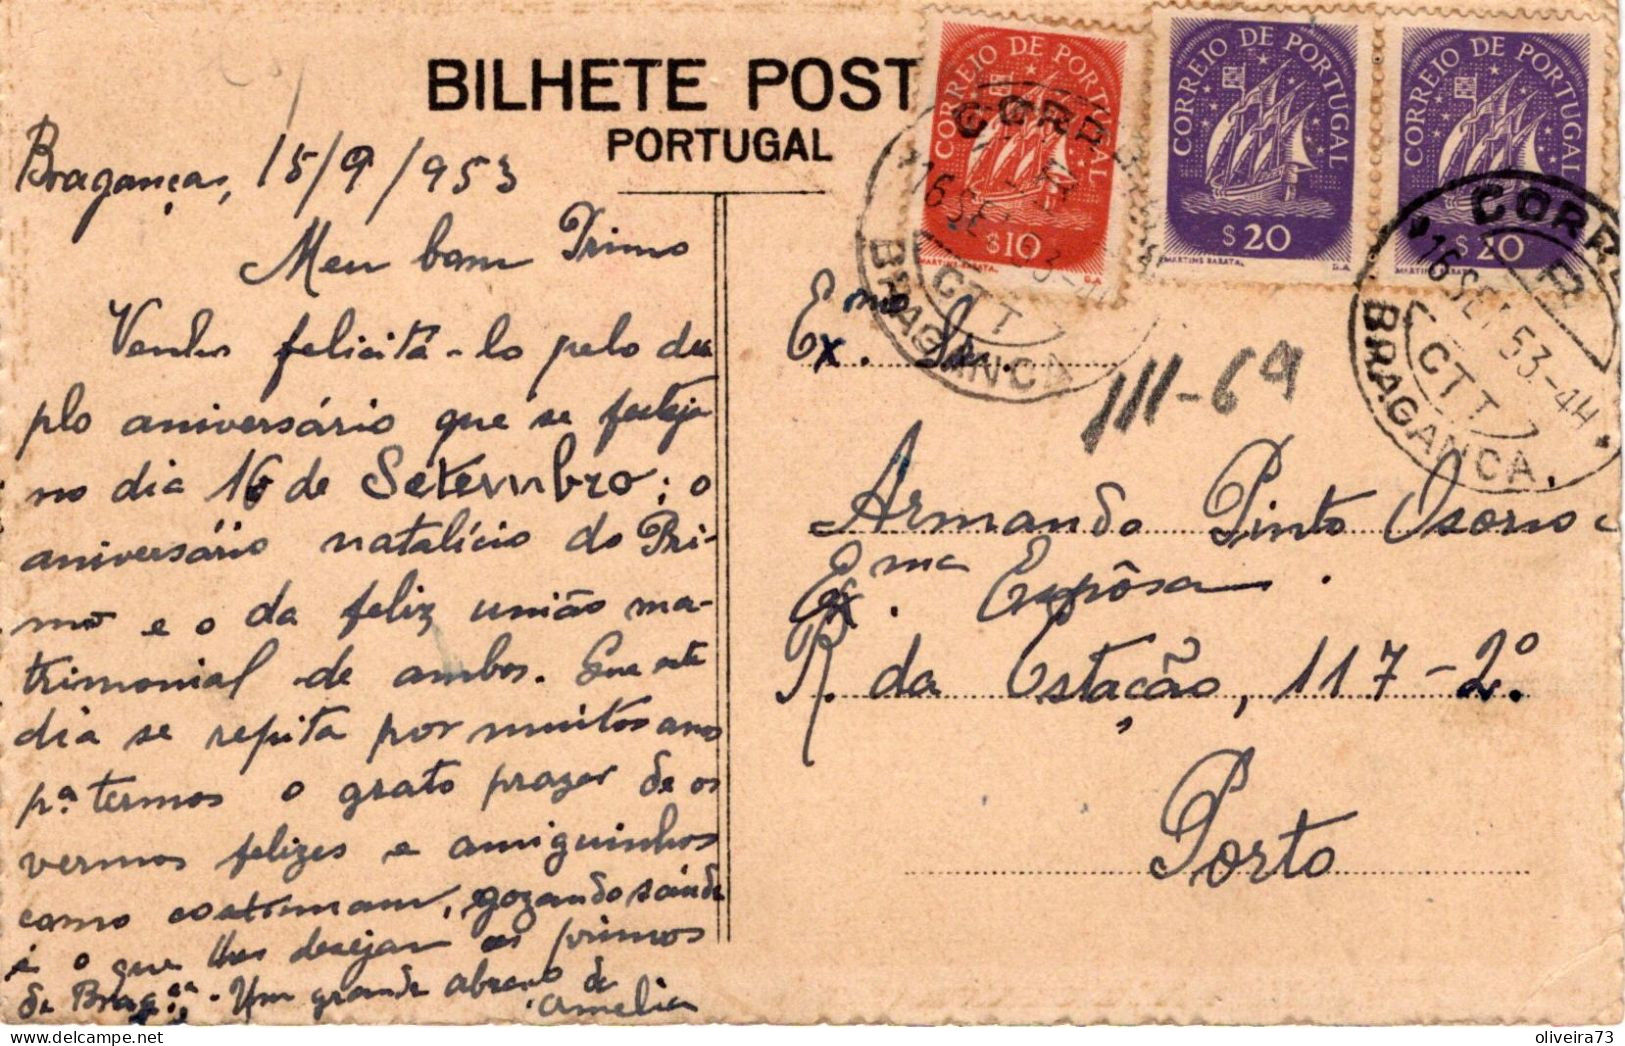 BILHETE POST
PORTUGAL
Bragança, 15/9/953
Meu bom Primo
Venho felicitá-lo pelo du
plo aniversário que se festeja
no dia 16 de Setembro; o
aniversário natalício do Pri-
mo e o da feliz união ma-
trimonial de ambos. Que este
dia se repita por muitos anos
pª termos o grato prazer de os
vermos felizes e amiguinhos
como costumam, gozando saúde
é o que lhes desejam os primos
de Bragça. Um grande abraço da
Amelia
CORREIO DE PORTUGAL
$10
MARTINS BARATA
CORREIO DE PORTUGAL
$20
MARTINS BARATA
CORREIO DE PORTUGAL
$20
MARTINS BARATA
16 SET 53
CTT
BRAGANCA
CORR
16 SET 53-44
CTT
BRAGANCA.
Exmo Sr.
III-69
Armando Pinto Osorio e
Exma Espôsa.
R. da Estação, 117-2º
Porto
oliveira73